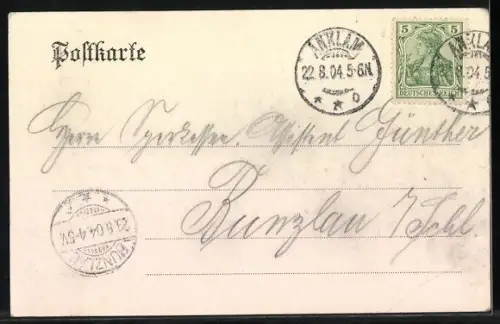 Postkarte
ANKLAM
22.8.04.5-6N.
* * c
5 5
DEUTSCHES REICH
ANKLAM
8.04.5-6N
Herrn Sparkassen Assistent Günther
Bunzlau i/Schl.
23.8.04.4-5V.
BUNZLAU